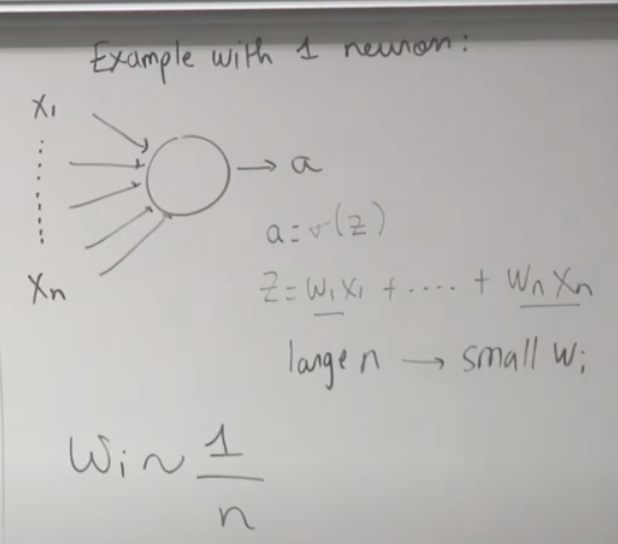 Example with 1 neuron:
x₁
→ a
a = σ(z)
xₙ
z = w₁x₁ + .... + wₙxₙ
large n → small wᵢ
wᵢ ~ 1/n